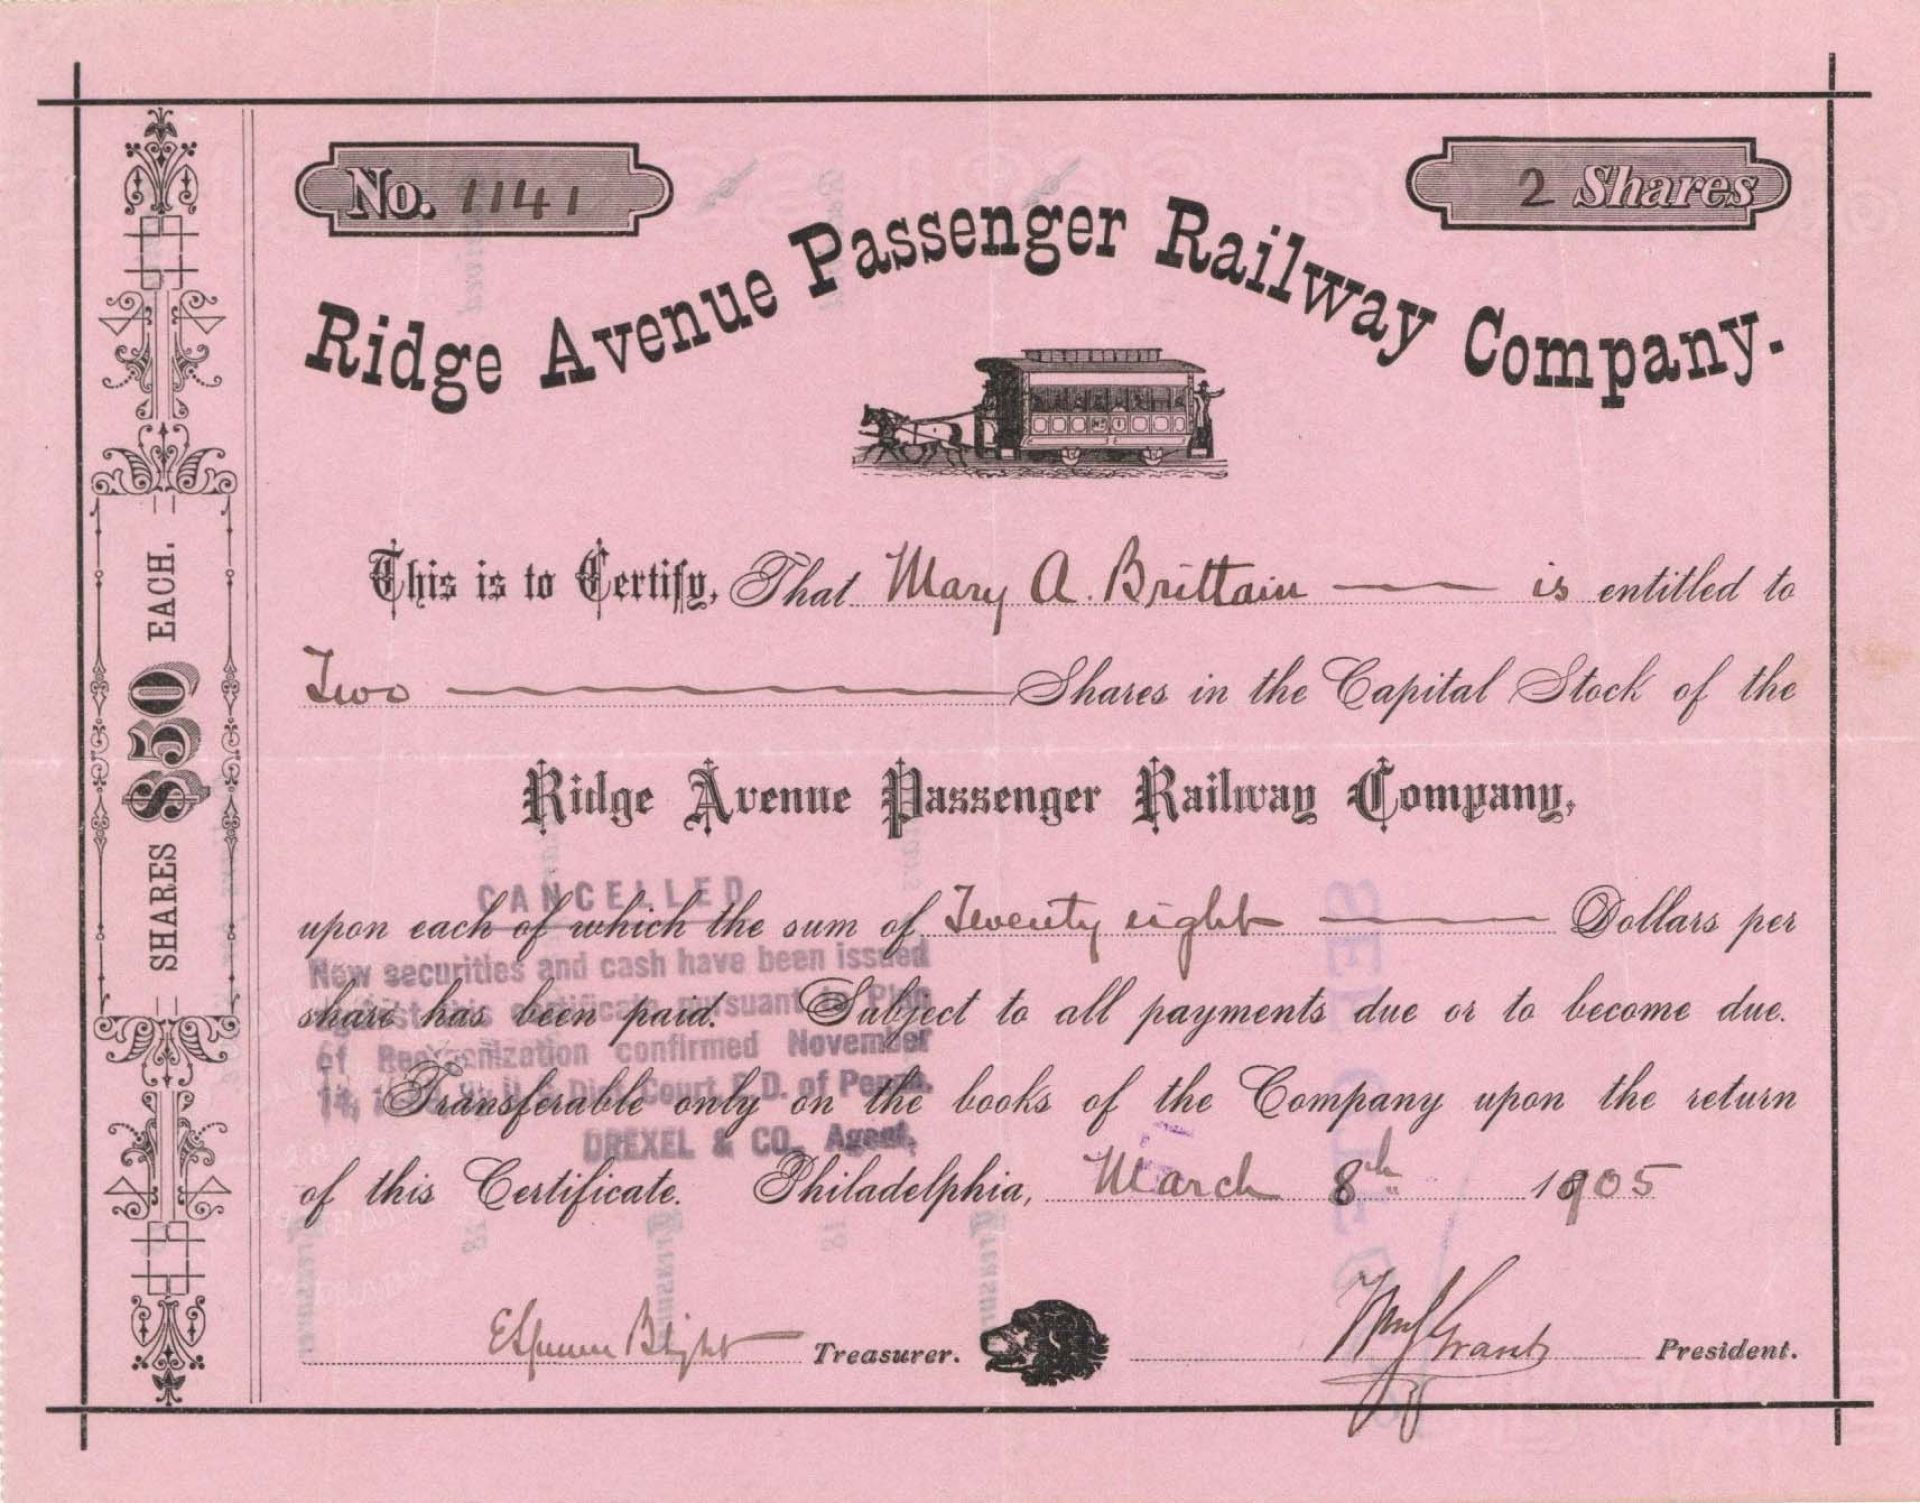 No. 1141
2 Shares
Ridge Avenue Passenger Railway Company.
No 1
SHARES $50 EACH.
This is to Certify, That Mary A. Brittain is entitled to
Two Shares in the Capital Stock of the
Ridge Avenue Passenger Railway Company,
CANCELLED
upon each of which the sum of Twenty eight Dollars per
New securities and cash have been issued
share has been paid. Subject to all payments due or to become due.
against this certificate pursuant to Plan
of Reorganization confirmed November
Transferable only on the books of the Company upon the return
14, U.S. Dist. Court E.D. of Penna.
DREXEL & CO., Agent,
of this Certificate. Philadelphia, March 8th 1905
Treasurer.
Wm J Grant
President.